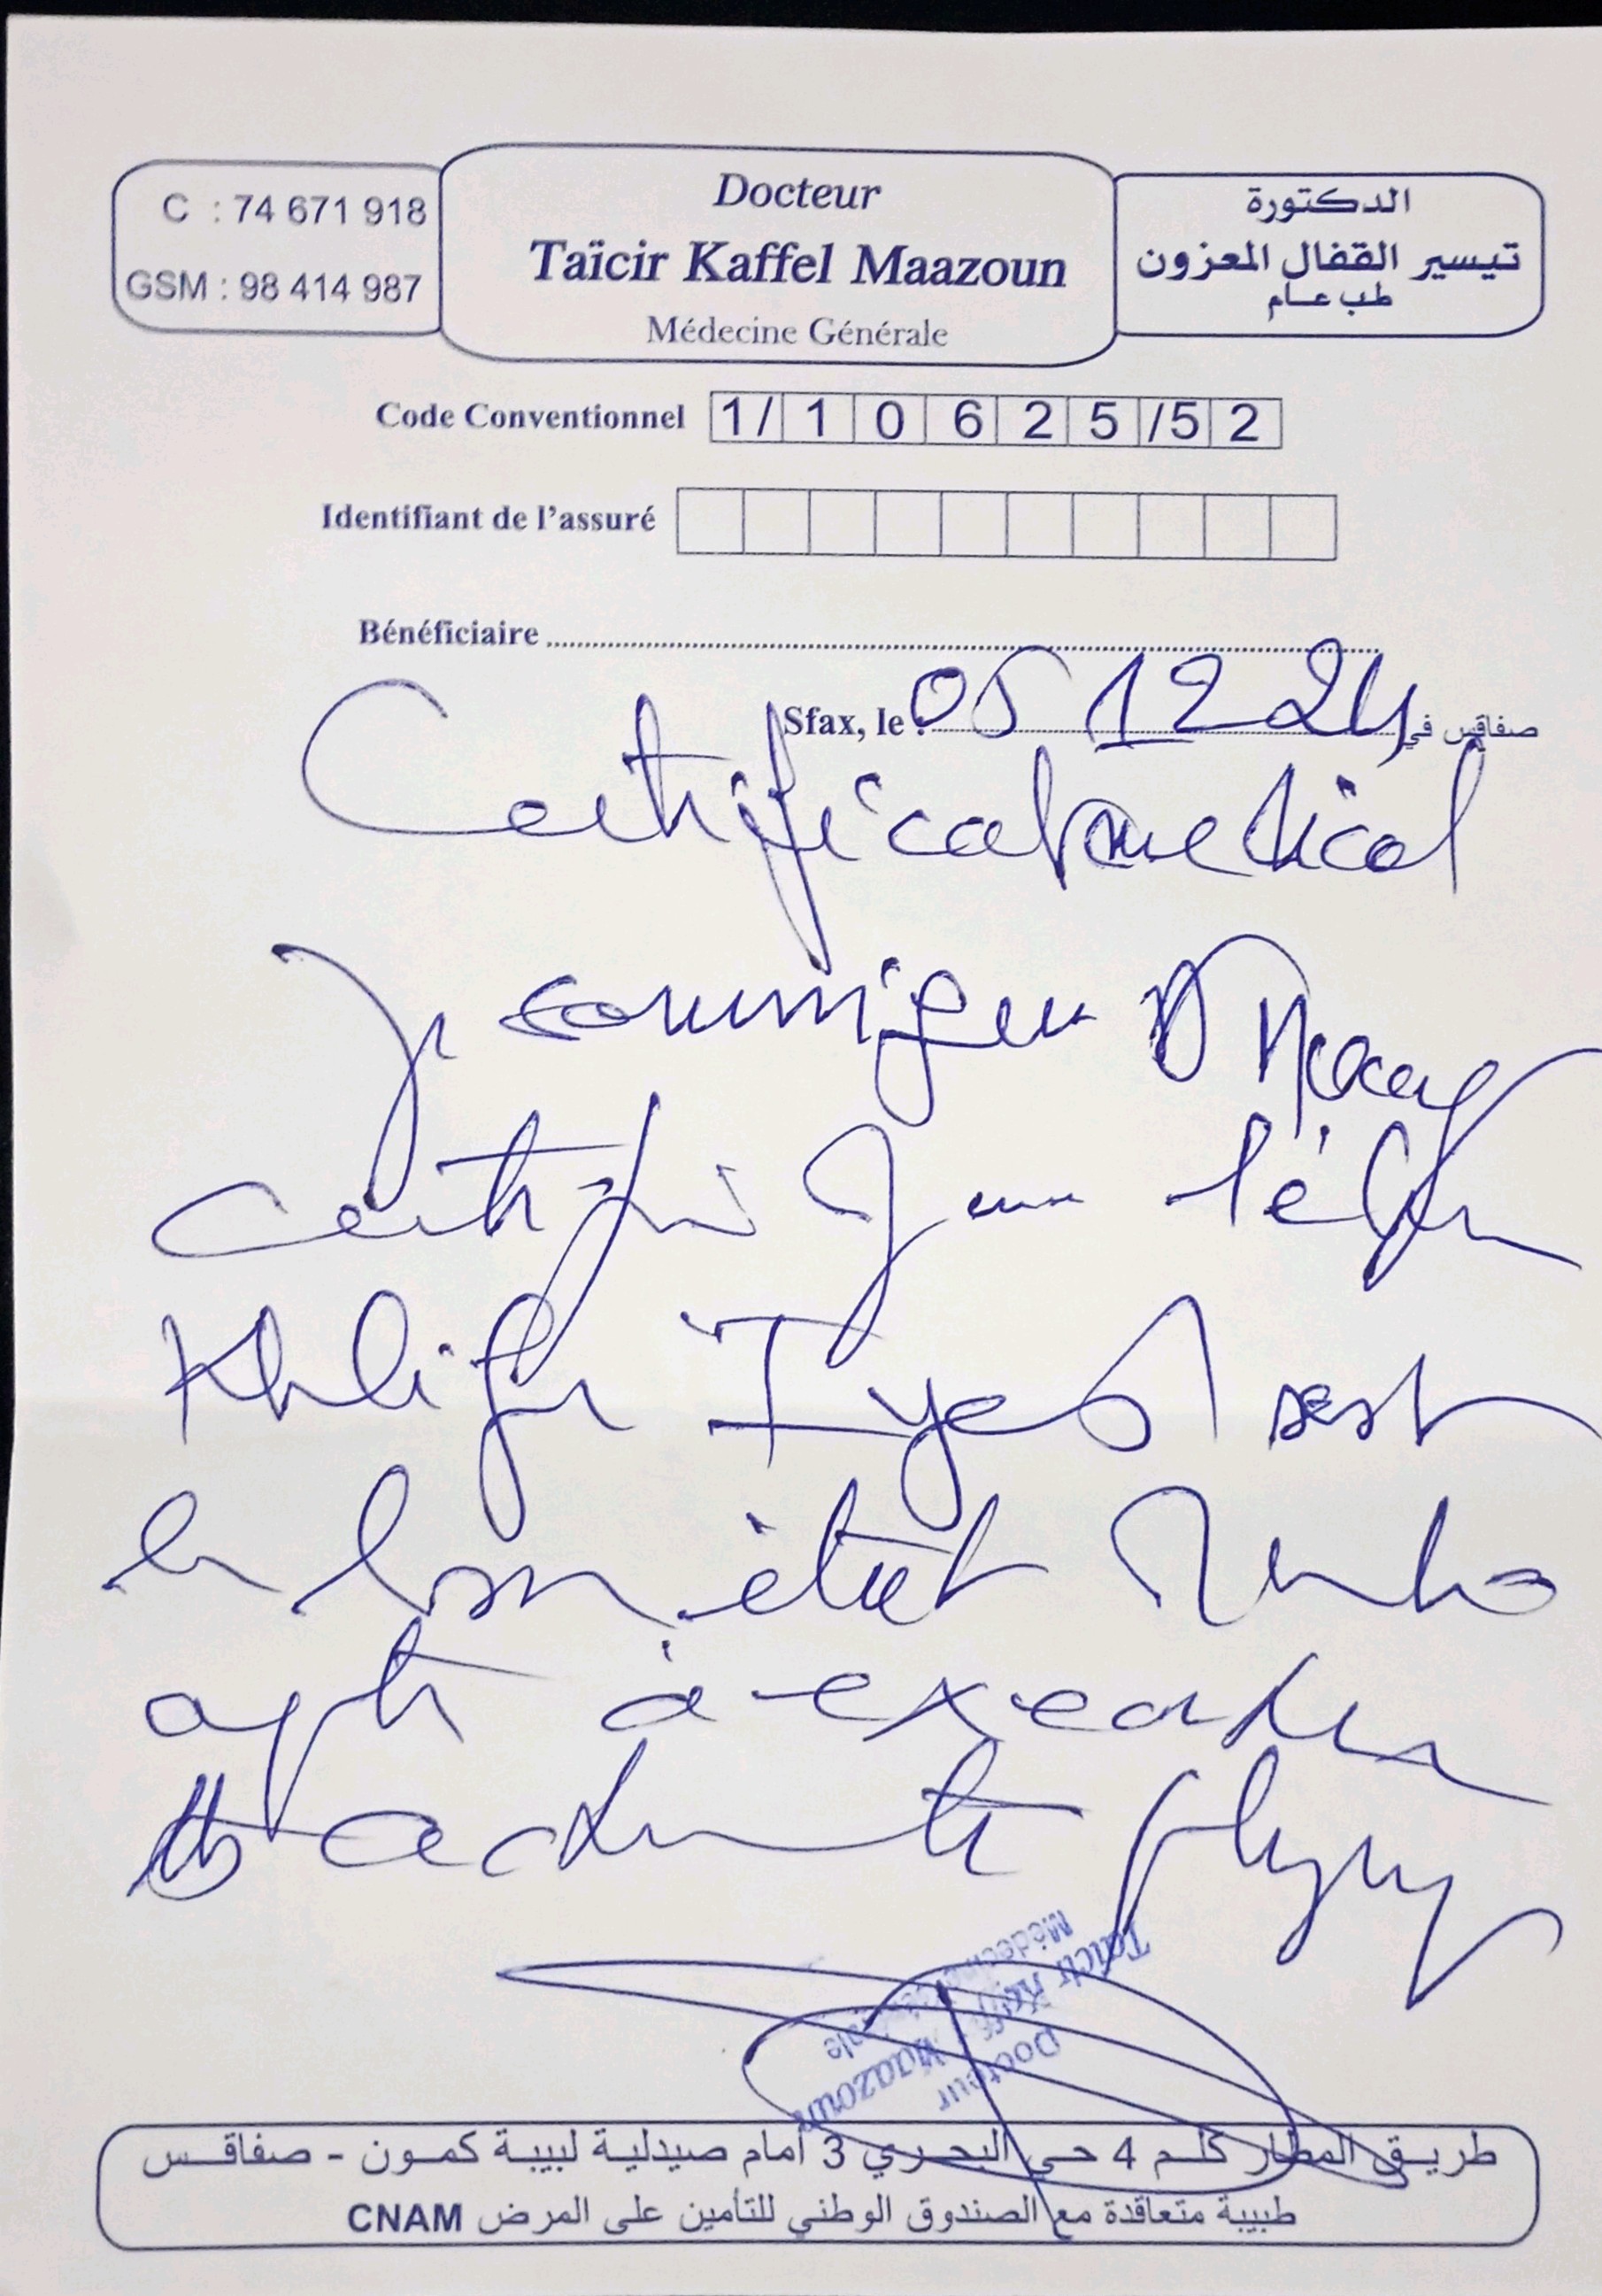 C : 74 671 918
GSM : 98 414 987
Docteur
Taïcir Kaffel Maazoun
Médecine Générale
الدكتورة
تيسير القفال المعزون
طب عـام
Code Conventionnel 1/ 1 0 6 2 5 /5 2
Identifiant de l'assuré
Bénéficiaire
Sfax, le : 05 12 24 صفاقس في
Certificat medical
Je soussigné Dr
certifie que l'élève
Khlifi Iyed est
en bon état
apte à exercer
activité physique
Docteur
Taïcir Kaffel Maazoun
Médecine Générale
طريـق المطار كلـم 4 حـي البحـري 3 أمام صيدليـة لبيبـة كمـون - صفاقـس
طبيبة متعاقدة مع الصندوق الوطني للتأمين على المرض CNAM